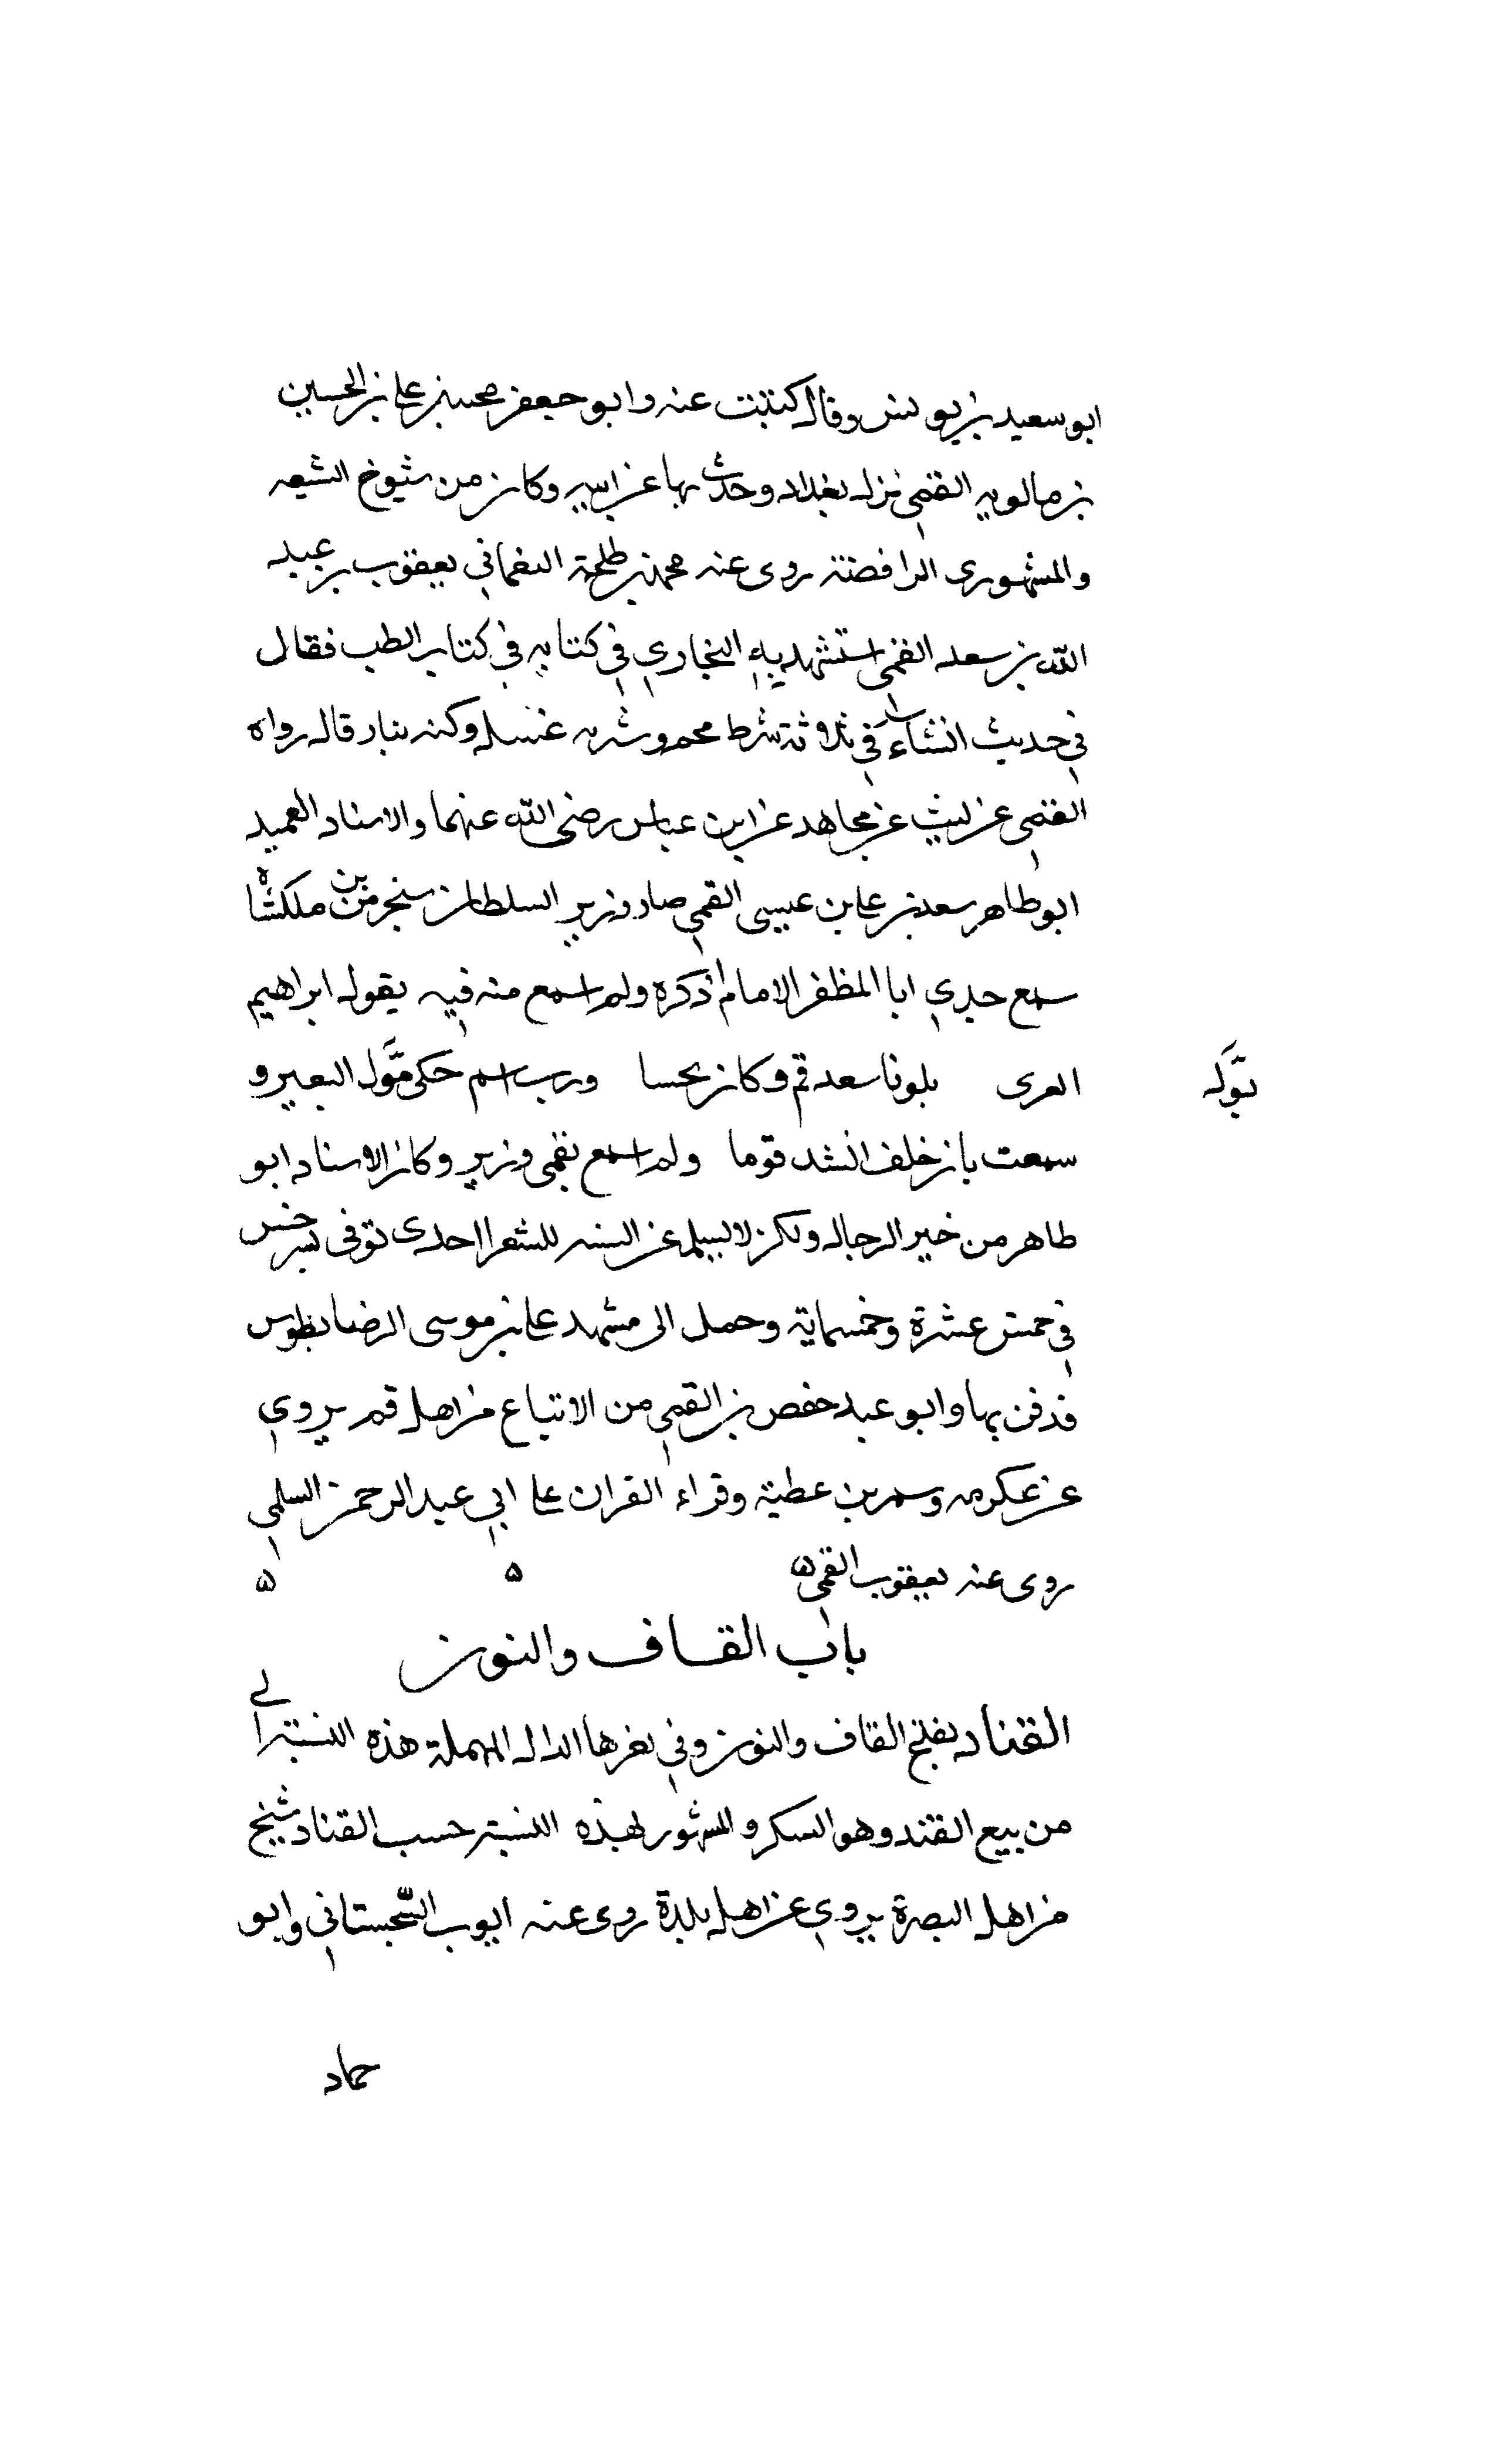 ابو سعيد بن يونس وقال كتبت عنه وابو جعفر محمد بن علي بن الحسين
بن مالويه القمي نزل بغداد وحدث بها عن ابيه وكان من شيوخ الشيعه
والمشهورى الرافضة روى عنه محمد بن طلحة النعماني يعقوب بن عبد
الله بن سعد القمي استشهد به البخاري في كتابه في كتاب الطب فقال
في حديث الشفاء في ثلاثة شرط محجم وشربه عسل وكيه بنار قال رواه
القمي عن ليث عن مجاهد عن ابن عباس رضي الله عنهما والاستاد العميد
ابو طاهر سعد بن علي بن عيسى القمي صار وزير السلطان سنجر بن ملكشاه
سمع جدي ابا المظفر الامام اذكره ولم اسمع منه فيه يقول ابراهيم
العرى بلونا سعد قم وكان نحسا ورب اسم حكى مَوّل البعير و
بَوّل
سمعت بان خلف انشد قوما ولم اسمع بقمى وزير وكان الاستاد ابو
طاهر من خير الرجال ولكن لا يسلم عن السنه الشعرا احدى توفى بسرخس
في خمس عشرة وخمسماية وحمل الى مشهد علي بن موسى الرضا بطوس
فدفن بها وابو عبد حفص بن القمي من الاتباع من اهل قم يروي
عن عكرمه وسمر بن عطية وقراء القران علي ابي عبد الرحمن السلمي
روى عنه يعقوب القمي ه ه ه
باب القاف والنون
القناد بفتح القاف والنون وفي بعدها الدال المهملة هذه النسبة الى
من بيع القند وهو السكر والمشهور بهذه النسبة حسب القناد شيخ
من اهل البصرة يروي عن اهل بلدة روى عنه ايوب السجستاني وابو
حماد